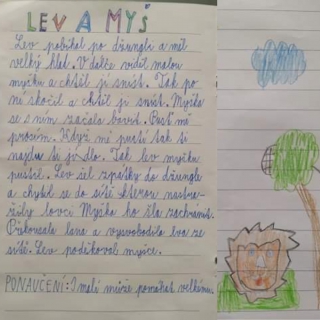 LEV A MYŠ
Lev pobíhal po džungli a měl
velký hlad. V dálce viděl malou
myšku a chtěl ji sníst. Tak po
ní skočil a chtěl ji sníst. Myška
se s ním začala bavit. Pusť mě
prosím. Když mě pustíš tak ti
najdu ti jídlo. Tak lev myšku
pustil. Lev šel zpátky do džungle
a chytil se do sítě kterou nastra-
žily lovci Myška ho šla zachránit.
Překousala lana a vysvobodila lva ze
sítě. Lev poděkoval myšce.
PONAUČENÍ: I malí může pomáhat velkému.